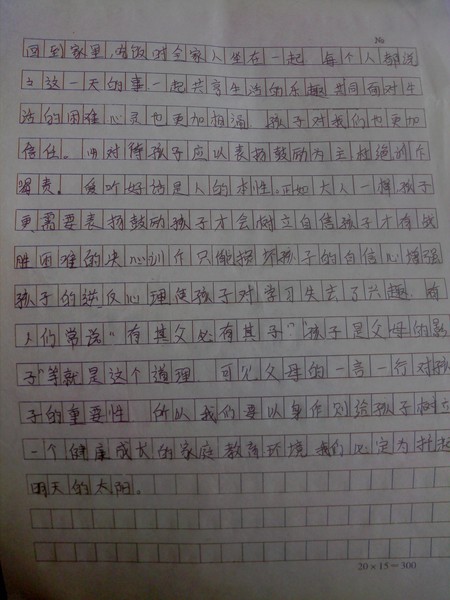 No
回到家里,吃饭时全家人坐在一起 每个人都说
这一天的事一起共享生活的乐趣共同面对生
活的困难心灵也更加相通 孩子对我们也更加
信任。四对待孩子应以表扬鼓励为主杜绝训斥
责。爱听好话是人的本性。正如大人一样孩子
更需要表扬鼓励孩子才会树立自信孩子才有战
胜困难的决心训斥只能损坏孩子的自信心增强
孩子的逆反心理使孩子对学习失去了兴趣。
人们常说"有其父必有其子""孩子是父母的影
子"等就是这个道理 可见父母的一言一行对孩
子的重要性 所以我们要以身作则给孩子树立
一个健康成长的家庭教育环境我们必定为托起
明天的太阳。
20×15=300